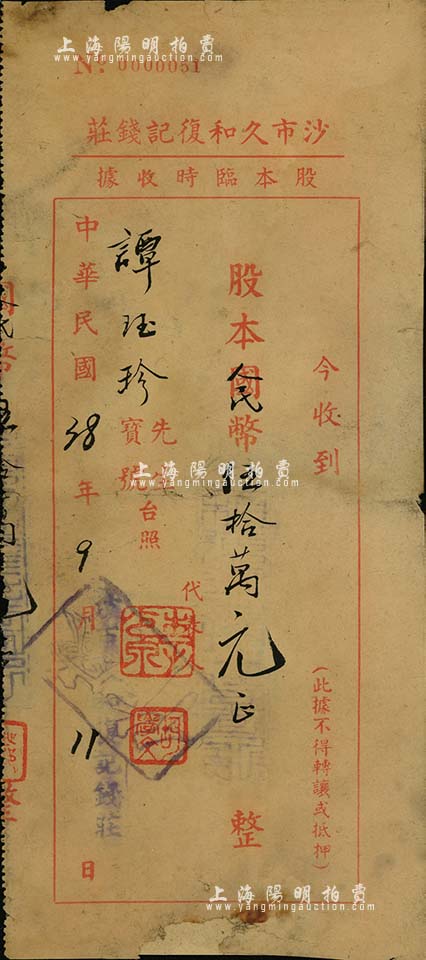 上海陽明拍賣
www.yangmingauction.com
No. 0000051
沙市久和復記錢莊
股本臨時收據
今收到
股本國幣
人民
伍拾萬元正
整
(此據不得轉讓或抵押)
譚珏珍
先生
寶號
台照
代表人
中華民國38年9月11日
上海陽明拍賣
www.yangmingauction.com
錢莊
上海陽明拍賣
www.yangmingauction.com